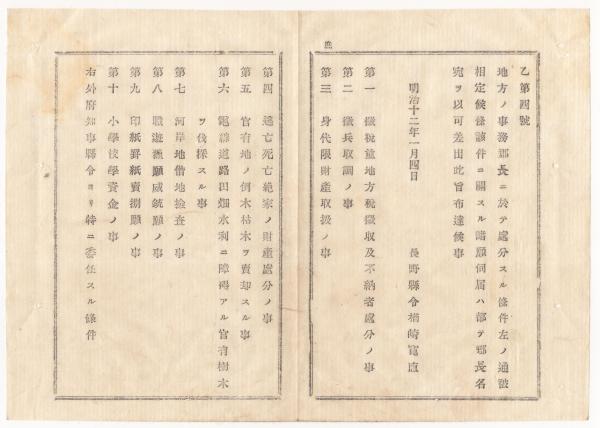 乙第四號
地方ノ事務郡長ニ於テ處分スル條件左ノ通被
相定候條該件ニ關スル諸願伺屆ハ都テ郡長名
宛ヲ以可差出此旨布達候事
明治十二年一月四日
長野縣令楢崎寬直
第一 徵稅並地方稅徵收及不納者處分ノ事
第二 徵兵取調ノ事
第三 身代限財產取扱ノ事
第四 逃亡死亡絕家ノ財產處分ノ事
第五 官有地ノ倒木枯木ヲ賣却スル事
第六 電線道路田畑水利ニ障碍アル官有樹木
ヲ伐採スル事
第七 河岸地借地檢査ノ事
第八 職遊獵願威銃願ノ事
第九 印紙罫紙賣捌願ノ事
第十 小學校學資金ノ事
右外府知事縣令ヨリ特ニ委任スル條件